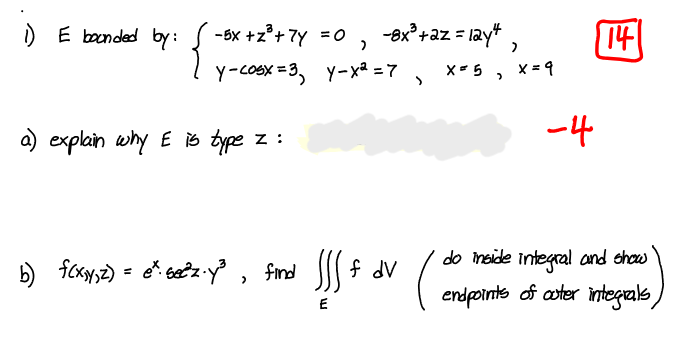 1) E bounded by: { -5x + z³ + 7y = 0 , -8x³ + 2z = 12y⁴ , 14
y - cosx = 3, y - x² = 7 , x = 5 , x = 9
a) explain why E is type z : -4
b) f(x,y,z) = eˣ · sec²z · y³ , find ∭ f dV ( do inside integral and show
E endpoints of outer integrals )